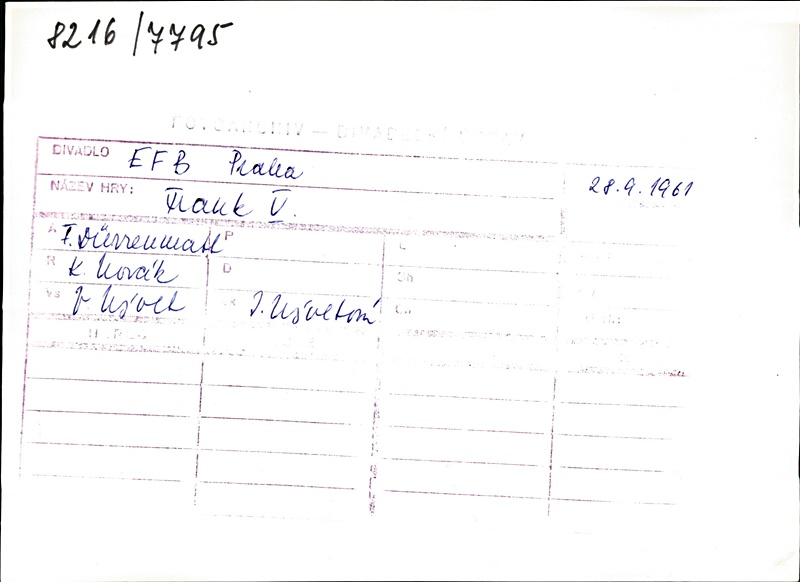 8216/7795
FOTOARCHIV – DIVADELNÍ
DIVADLO EFB Praha
28.9.1961
NÁZEV HRY: Frank V.
A F. Dürrenmatt P
R K. Novák D Ch
VS V. Nývlt J. Nývltová